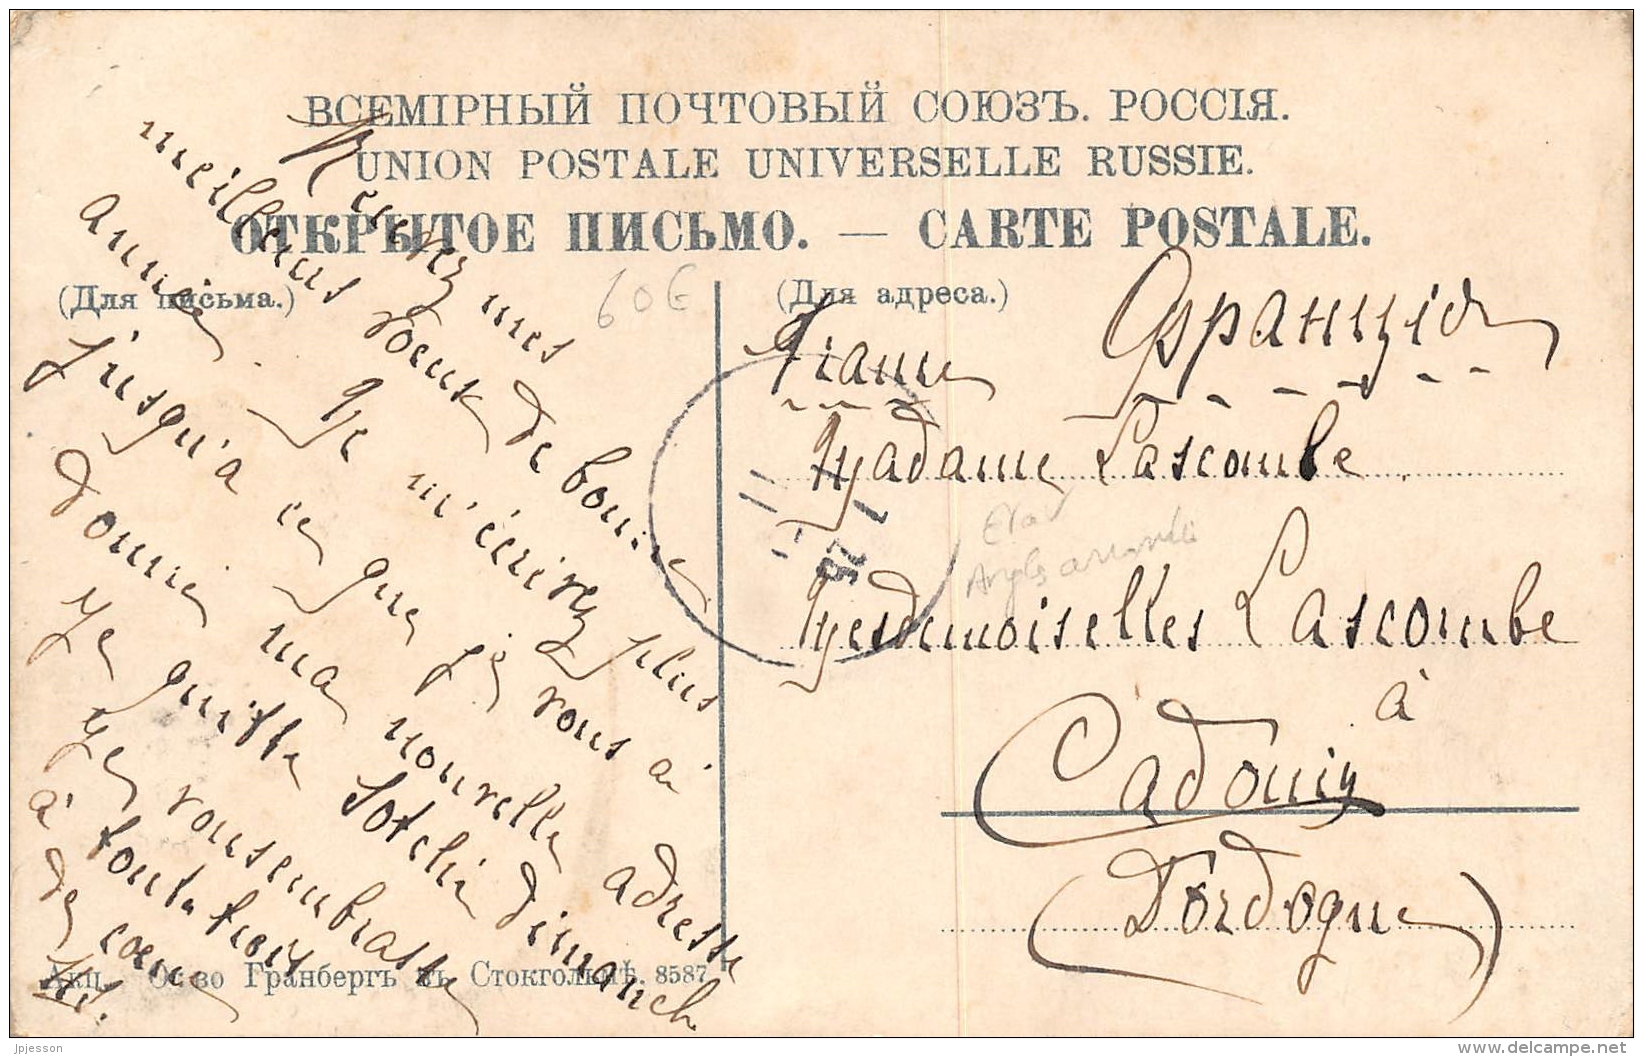 ВСЕМІРНЫЙ ПОЧТОВЫЙ СОЮЗЪ. РОССІЯ.
UNION POSTALE UNIVERSELLE RUSSIE.
ОТКРЫТОЕ ПИСЬМО. — CARTE POSTALE.
(Для письма.)
(Для адреса.)
60€
Recevez mes
meilleurs voeux de bonne
année. Ne m'écrivez plus
jusqu'à ce que je vous ai
donné ma nouvelle adresse
Je quitte Sotchi dimanch
Je vous embrasse
à toute trois
de coeur
Франція
France
Madame Lascombe
Mesdemoiselles Lascombe
à
Cadouin
(Dordogne)
Акц. О-во Гранбергъ въ Стокгольмѣ. 8587
jpjesson
www.delcampe.net